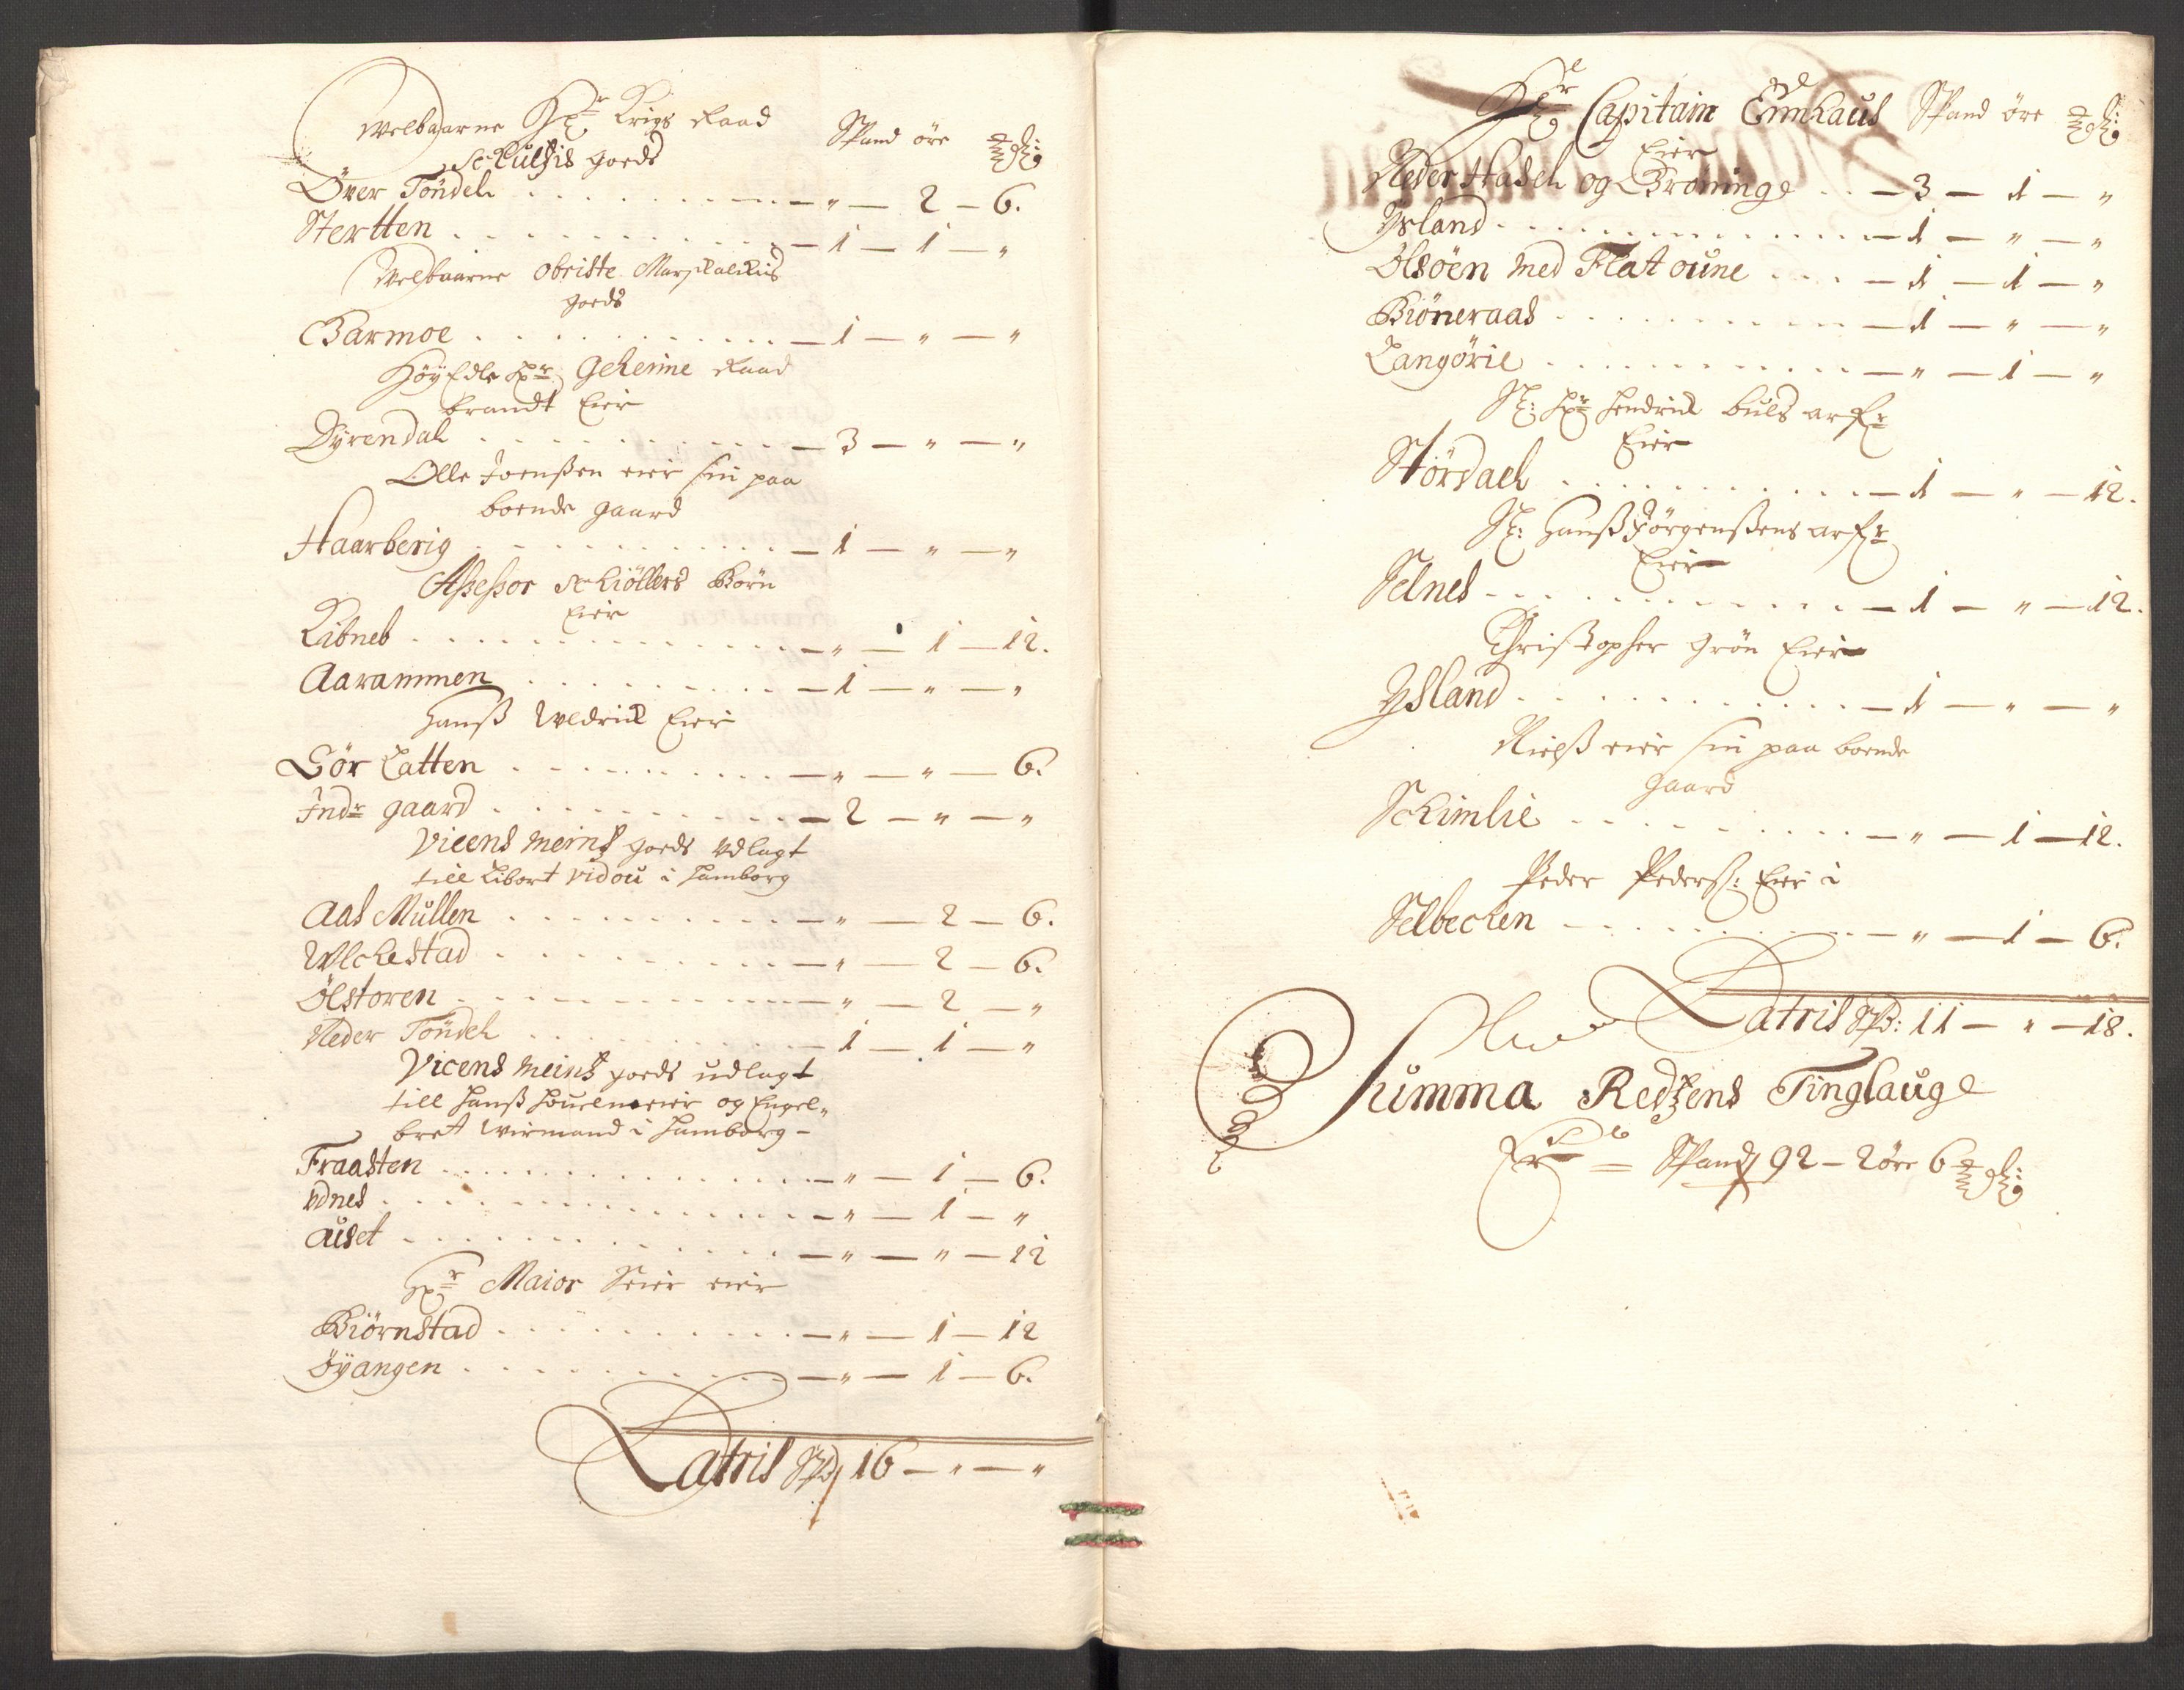 Welbaarne Hr Krigs Raad Spand öre
Schultzis goeds
Över Töndel - " - 2 - 6.
Stertten - 1 - 1 - "
Welbaarne Obriste Marschalckis
goeds
Garmoe - 1 - " - "
HöyEdle Hr Geheime Raad
brandt Eier
Dyrendal - 3 - " - "
Olle Joenßen eier sin paa
boende gaard
Haarberig - 1 - " - "
Aßeßor Schiöllers Börn
Eier
Libneb - " - 1 - 12.
Aarammen - 1 - " - "
Hanß Wldrich Eier
Gör Latten - " - " - 6.
Indr gaard - 2 - " - "
Vicens meins goeds udlagt
till Libort vidou i Hamborg
Aas Mullen - " - 2 - 6.
Wlchestad - " - 2 - 6.
Ölstoren - " - 2 - "
Neder Töndel - 1 - 1 - "
Vicens meins goeds udlagt
till Hanß og Engel-
bret Wirmand i Hamborg -
Fraasten - " - 1 - 6.
Udnes - " - 1 - "
Auset - " - " - 12
Hr Maior Seier eier
Biörnstad - " - 1 - 12
Öyangen - " - 1 - 6.
Latris Spd 16 - " - "
Hr Capitain Emhaus Spand öre
Eier
Neder Hasel og Gröninge - 3 - 1 - "
Ysland - 1 - " - "
Olsöen med Flat oune - 1 - 1 - "
Biöneraas - 1 - " - "
Langörie - " - 1 - "
Sl: Hr Hendrich buls arfr
Eier
Stördael - 1 - " - 12.
Sl: Hanß Jörgenßens arfr
Eier
Selnes - 1 - " - 12.
Christopher Grön Eier
Ysland - 1 - " - "
Nielß eier sin paa boende
gaard
Schimlie - " - 1 - 12.
Peder Pederß: Eier i
Selbechen - " - 1 - 6.
Latris Spd: 11 - " - 18.
Summa Redßens Tinglauge
Er = Spand 92 - 2 öre 6